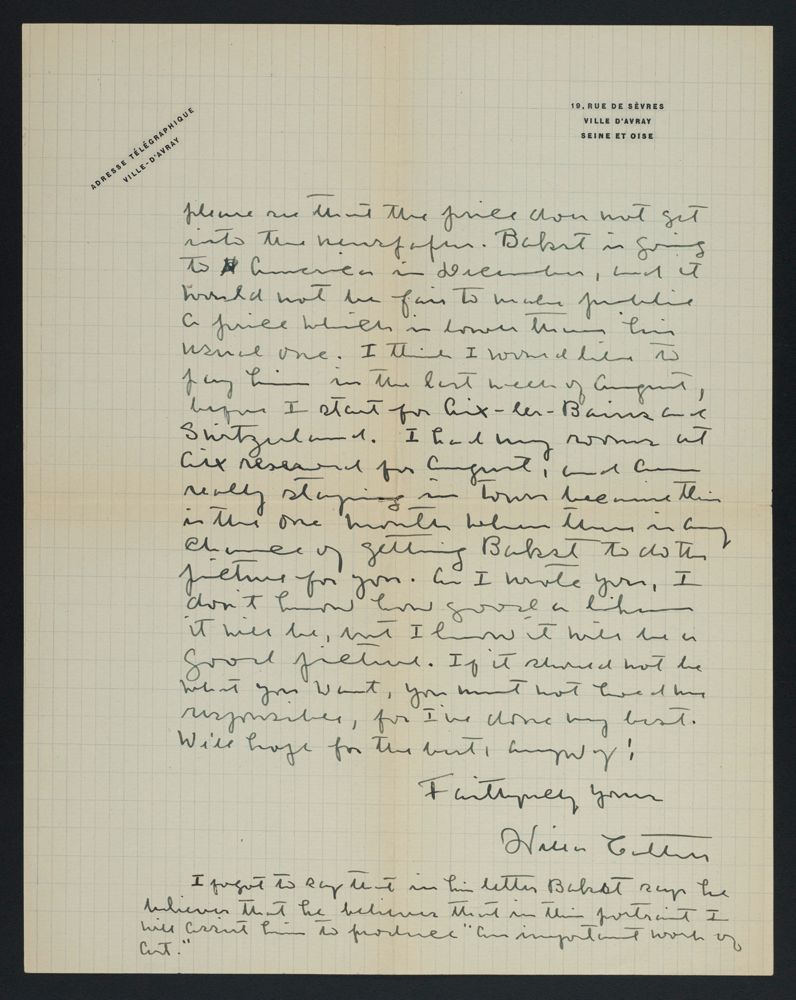 ADRESSE TÉLÉGRAPHIQUE
VILLE-D'AVRAY
19, RUE DE SÈVRES
VILLE D'AVRAY
SEINE ET OISE
please see that the price does not get
into the newspapers. Bakst is going
to America in December, and it
would not be fair to make public
a price which is lower than his
usual one. I think I would like to
pay him in the last week of August,
before I start for Aix-les-Bains and
Switzerland. I had my rooms at
Aix reserved for August, and am
really staying in town because this
is the one month when there is any
chance of getting Bakst to do the
picture for you. As I wrote you, I
don't know how good a likeness
it will be, but I know it will be a
good picture. If it should not be
what you want, you must not hold me
responsible, for I've done my best.
We'll hope for the best, anyway!
Faithfully yours
Willa Cather
I forgot to say that in his letter Bakst says he
believes that he believes that in this portrait I
will assist him to produce "an important work of
art."